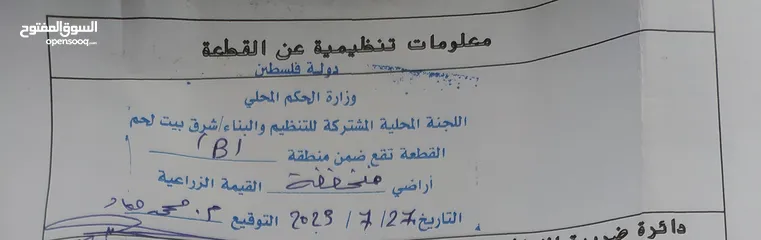 السوق المفتوح
opensooq.com
معلومات تنظيمية عن القطعة
دولة فلسطين
وزارة الحكم المحلي
اللجنة المحلية المشتركة للتنظيم والبناء/شرق بيت لحم
القطعة تقع ضمن منطقة (B)
أراضي منخفضة القيمة الزراعية
التاريخ 27/ 7 / 2023 التوقيع م.
دائرة ضريبة